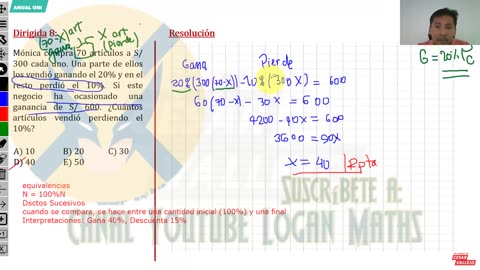 ANUAL UNI
Dirigida 8:
(70-X) art
gana
X art
(pierde)
Mónica compra 70 artículos a S/
300 cada uno. Una parte de ellos
los vendió ganando el 20% y en el
resto perdió el 10%. Si este
negocio ha ocasionado una
ganancia de S/ 600. ¿Cuántos
artículos vendió perdiendo el
10%?
A) 10 B) 20 C) 30
D) 40 E) 50
equivalencias
N = 100%N
Dsctos Sucesivos
cuando se compara, se hace entre una cantidad inicial (100%) y una final
Interpretaciones: Gana 40%; Descuenta 15%
Resolución
Gana Pierde
20%(300(70-X)) - 10%(300X) = 600
60(70-x) - 30X = 600
4200 - 90X = 600
3600 = 90X
X = 40 Rpta
G = 20% Pc
SUSCRÍBETE A:
CANAL YOUTUBE LOGAN MATHS
CESAR
VALLEJO